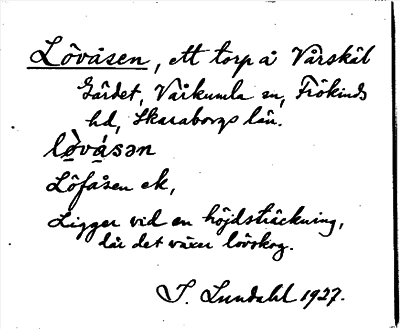 Lövåsen, ett torp å Vårskäl
Gärdet, Vårkumla sn, Frökinds
hd, Skaraborgs län.
lo̱̊̀vá̱sən
Löfåsen ek,
Ligger vid en höjdsträckning,
där det växer lövskog.
I. Lundahl 1927.